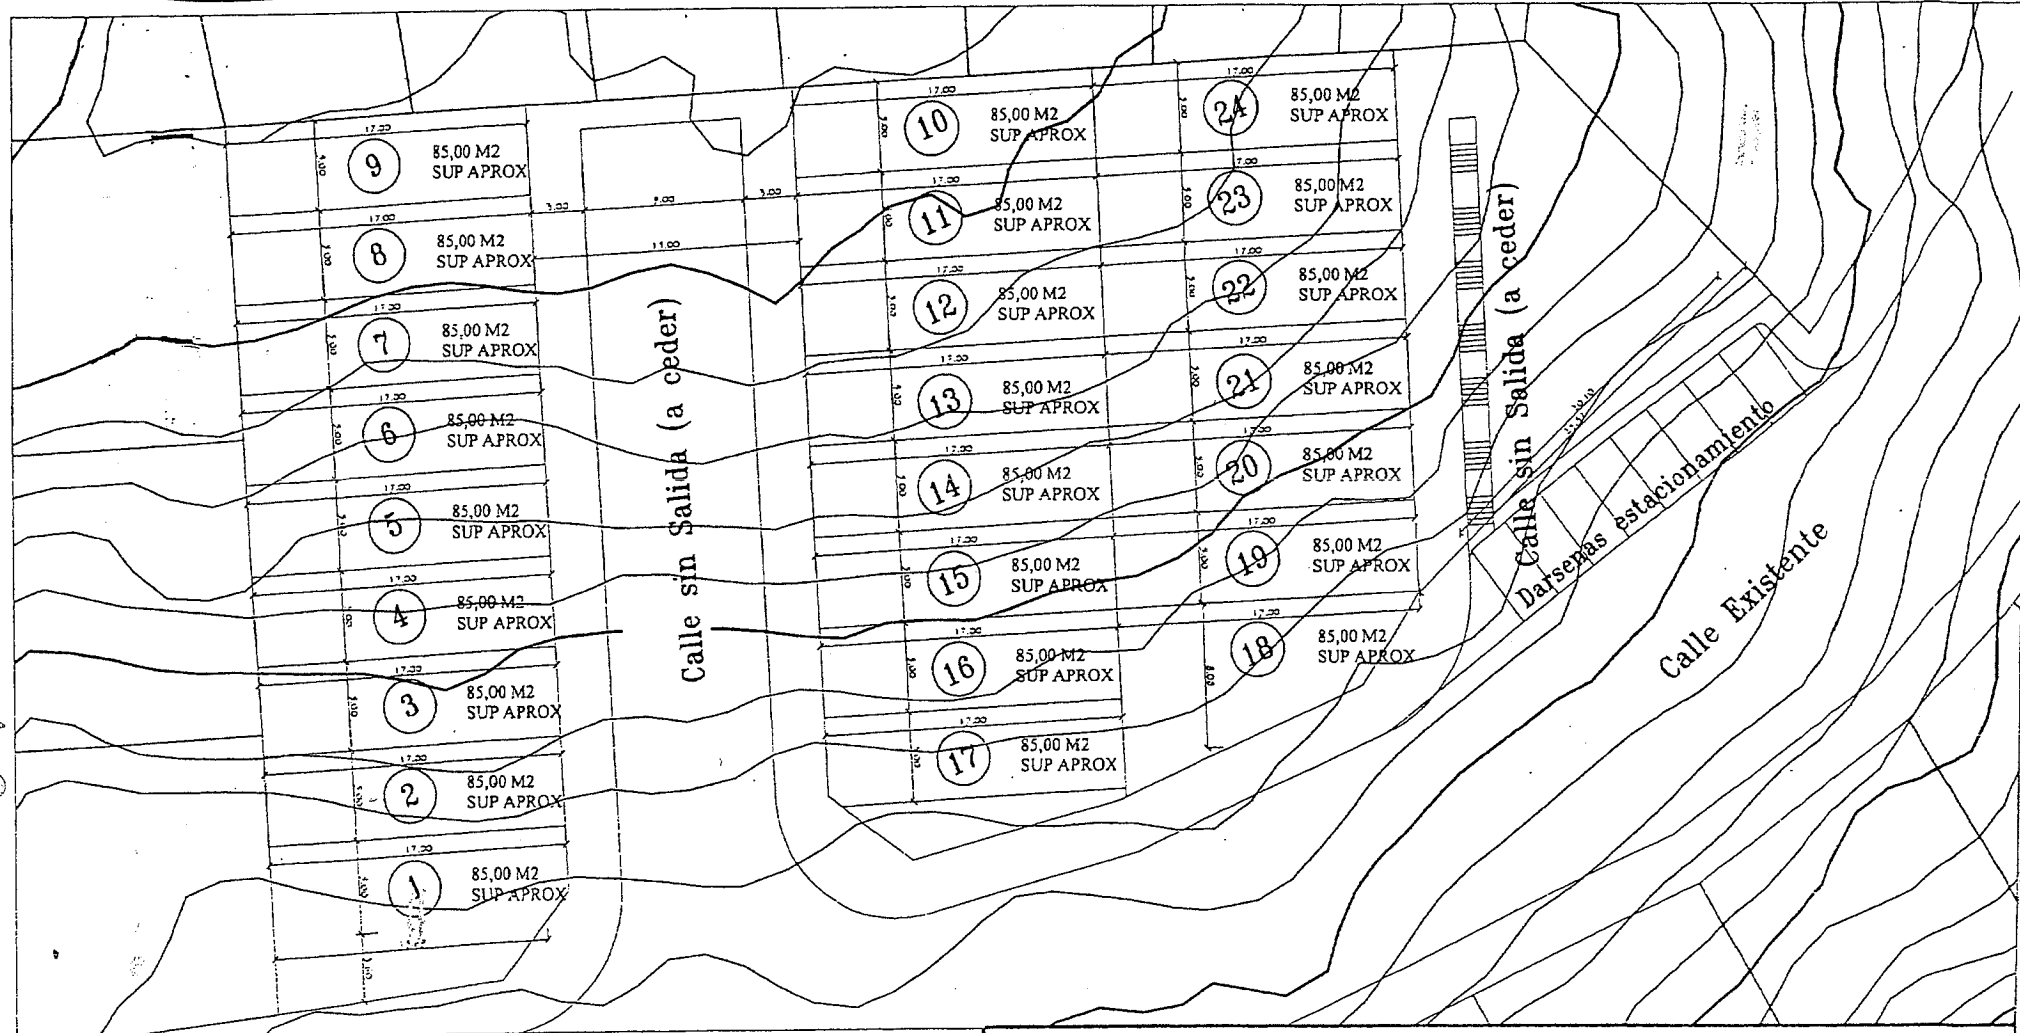 17.00
9
85,00 M2
SUP APROX
5.00
17.00
8
85,00 M2
SUP APROX
5.00
17.00
7
85,00 M2
SUP APROX
5.00
17.00
6
85,00 M2
SUP APROX
5.00
17.00
5
85,00 M2
SUP APROX
5.00
17.00
4
85,00 M2
SUP APROX
5.00
17.00
3
85,00 M2
SUP APROX
5.00
17.00
2
85,00 M2
SUP APROX
5.00
17.00
1
85,00 M2
SUP APROX
5.00
3.00
3.00
Calle sin Salida (a ceder)
17.00
10
85,00 M2
SUP APROX
5.00
17.00
11
85,00 M2
SUP APROX
17.00
12
85,00 M2
SUP APROX
5.00
17.00
13
85,00 M2
SUP APROX
5.00
17.00
14
85,00 M2
SUP APROX
5.00
17.00
15
85,00 M2
SUP APROX
5.00
17.00
16
85,00 M2
SUP APROX
5.00
17.00
17
85,00 M2
SUP APROX
17.00
24
85,00 M2
SUP APROX
5.00
23
85,00 M2
SUP APROX
5.00
17.00
22
85,00 M2
SUP APROX
5.00
17.00
21
85,00 M2
SUP APROX
5.00
17.00
20
85,00 M2
SUP APROX
5.00
17.00
19
85,00 M2
SUP APROX
5.00
17.00
18
85,00 M2
SUP APROX
8.00
Calle sin Salida (a ceder)
Darsenas estacionamiento
Calle Existente